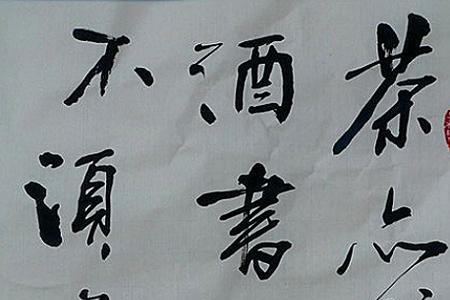 茶亦
酒書
不須